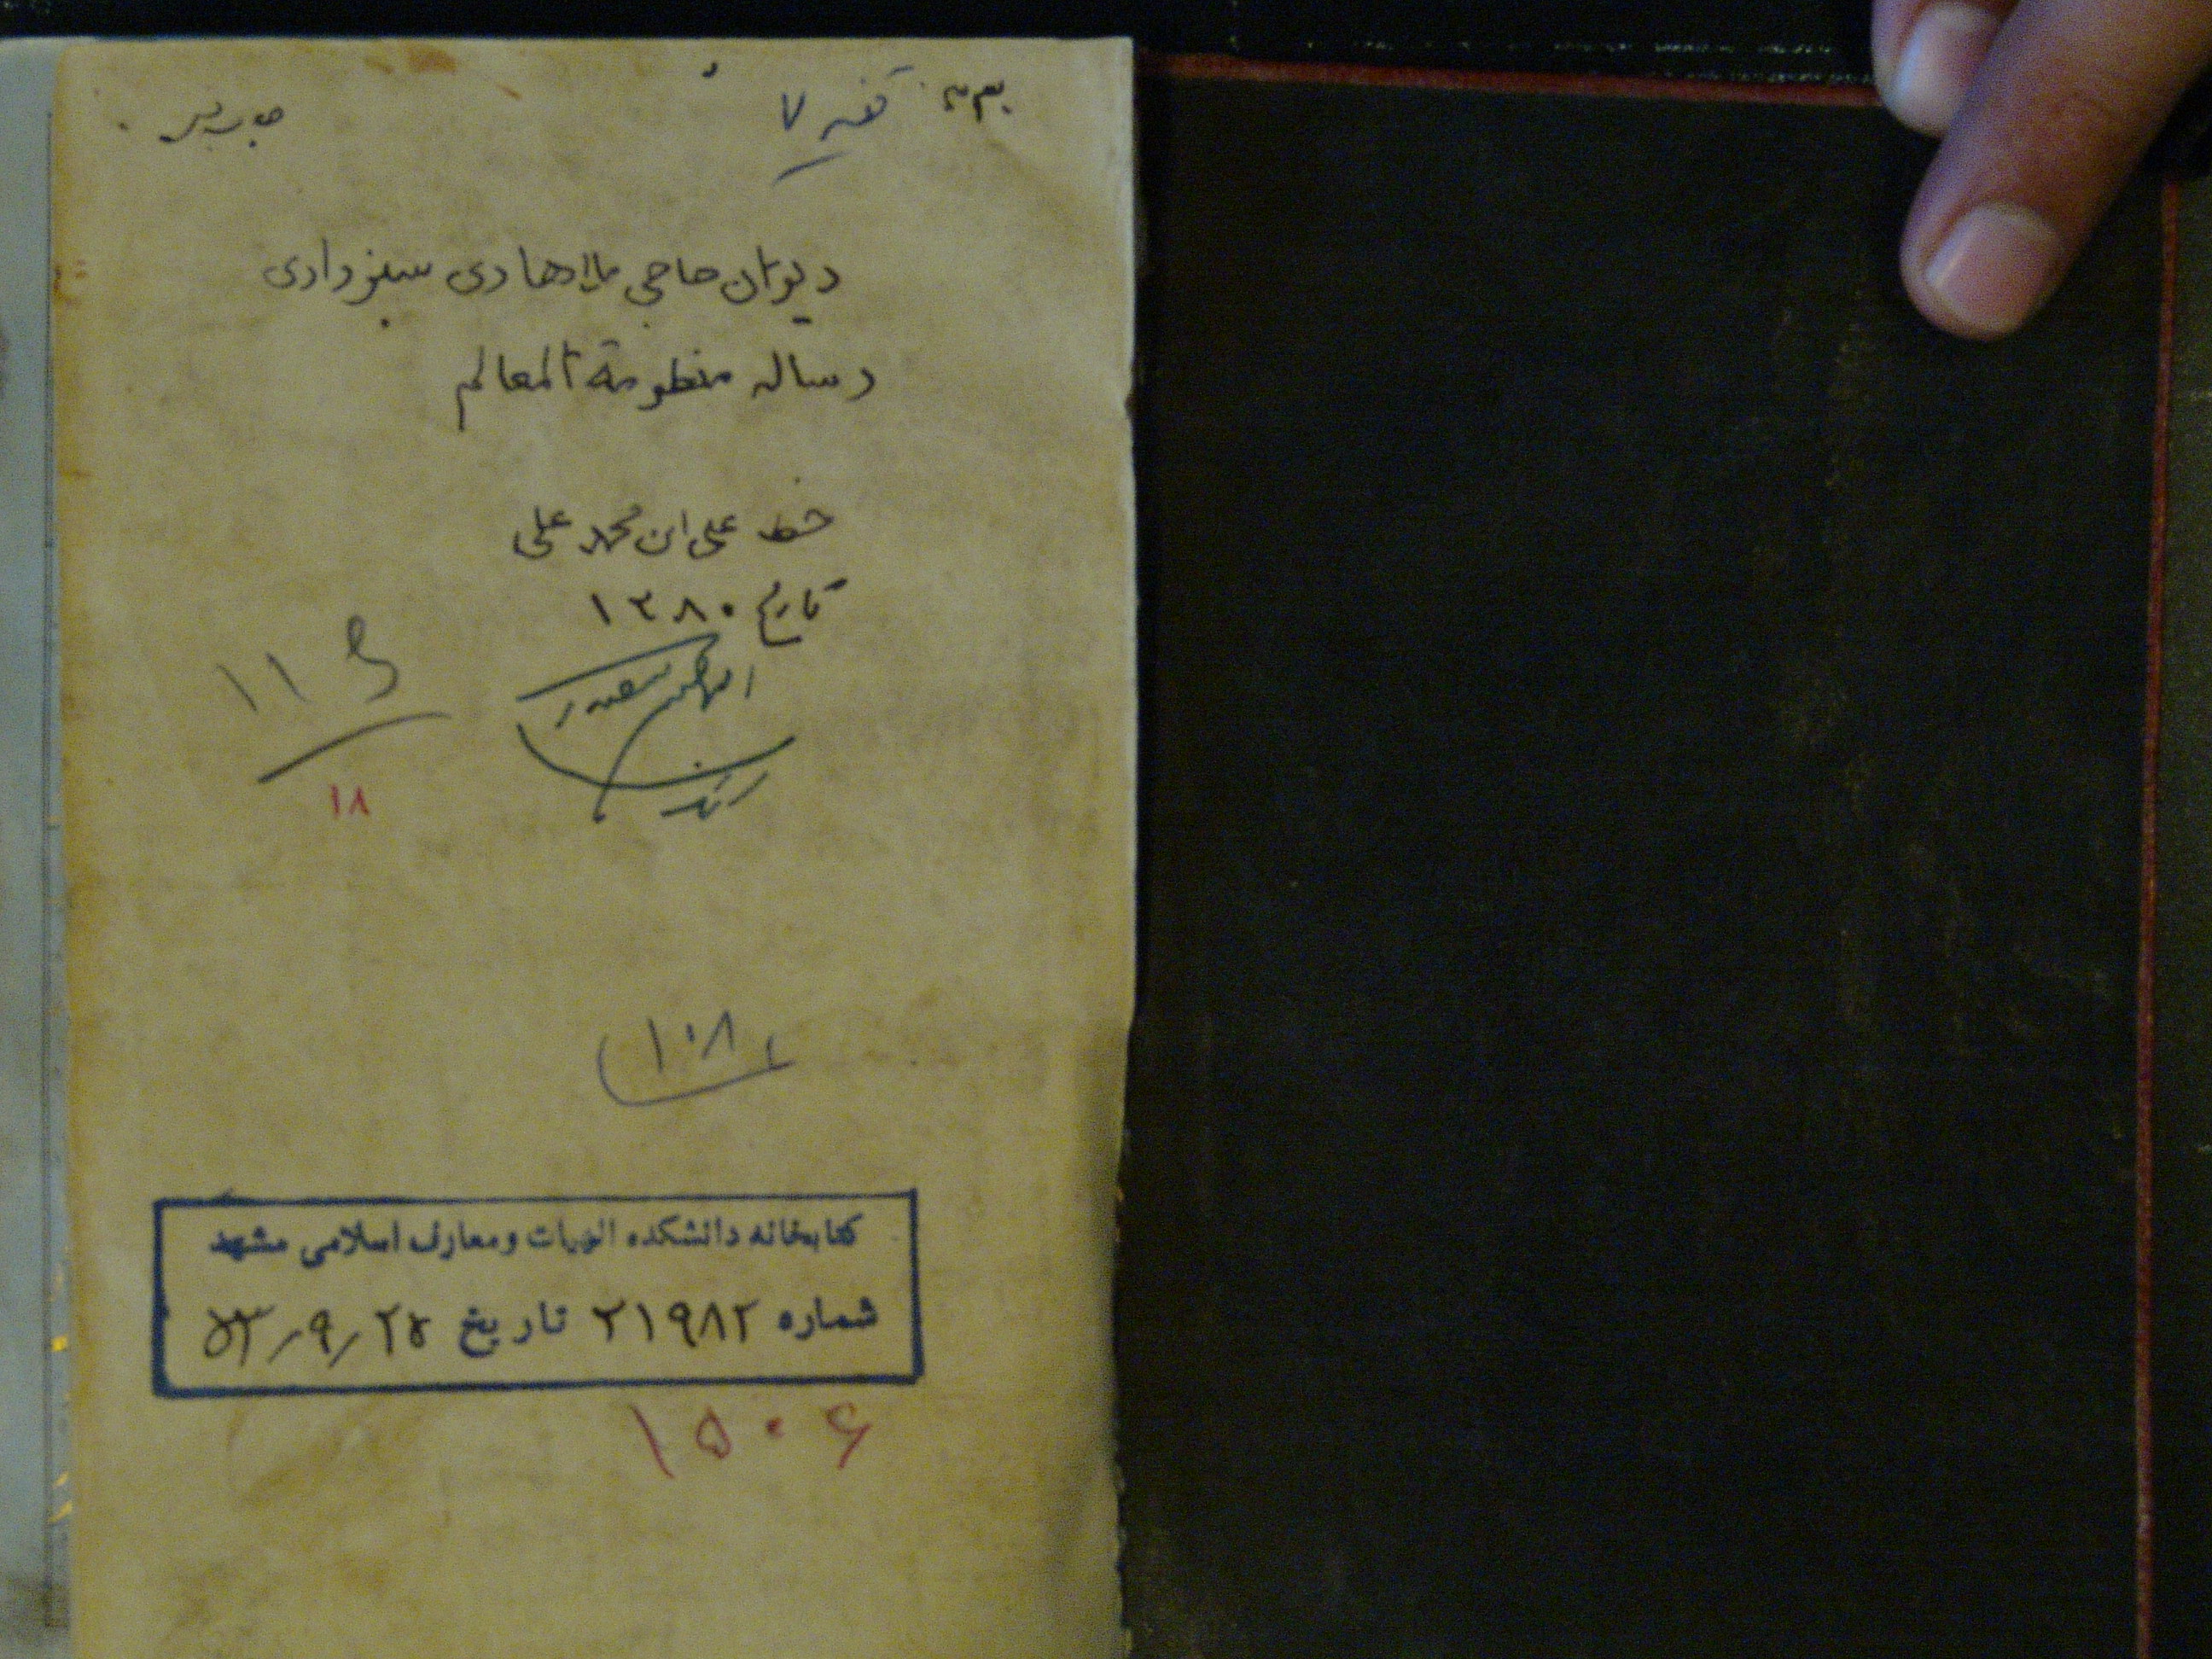 قفسه ۷
دیوان حاجی ملاهادی سبزواری
رساله منظومة المعالم
خط علی ابن محمد علی
تاریخ ۱۲۸۰
۱۱ ع
۱۸
۱۰۸
کتابخانه دانشکده الهیات و معارف اسلامی مشهد
شماره ۲۱۹۸۲ تاریخ ۵۳/۹/۲۵
۱۵۰۶